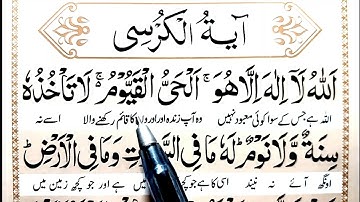 آیةُ الْکُرْسِی
اَللّٰهُ لَاۤ اِلٰهَ اِلَّا هُوَ ۚ اَلْحَیُّ الْقَیُّوْمُ ۚ لَا تَاْخُذُهٗ
اللہ ہے جس کے سوا کوئی معبود نہیں وہ آپ زندہ اور اوروں کا قائم رکھنے والا اسے نہ
سِنَةٌ وَّلَا نَوْمٌ ؕ لَهٗ مَا فِی وَمَا فِی الْاَرْضِ ؕ
اونگھ آئے نہ نیند اسی کا ہے جو کچھ میں ہے اور جو کچھ زمین میں